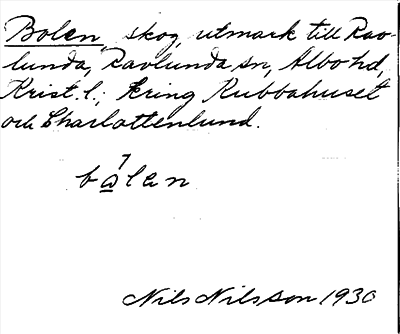 Bolen, skog, utmark till Rav-
lunda, Ravlunda sn, Albo hd,
Krist. l.; kring Rubbahuset
och Charlottenlund.
bo̲len
Nils Nilsson 1930